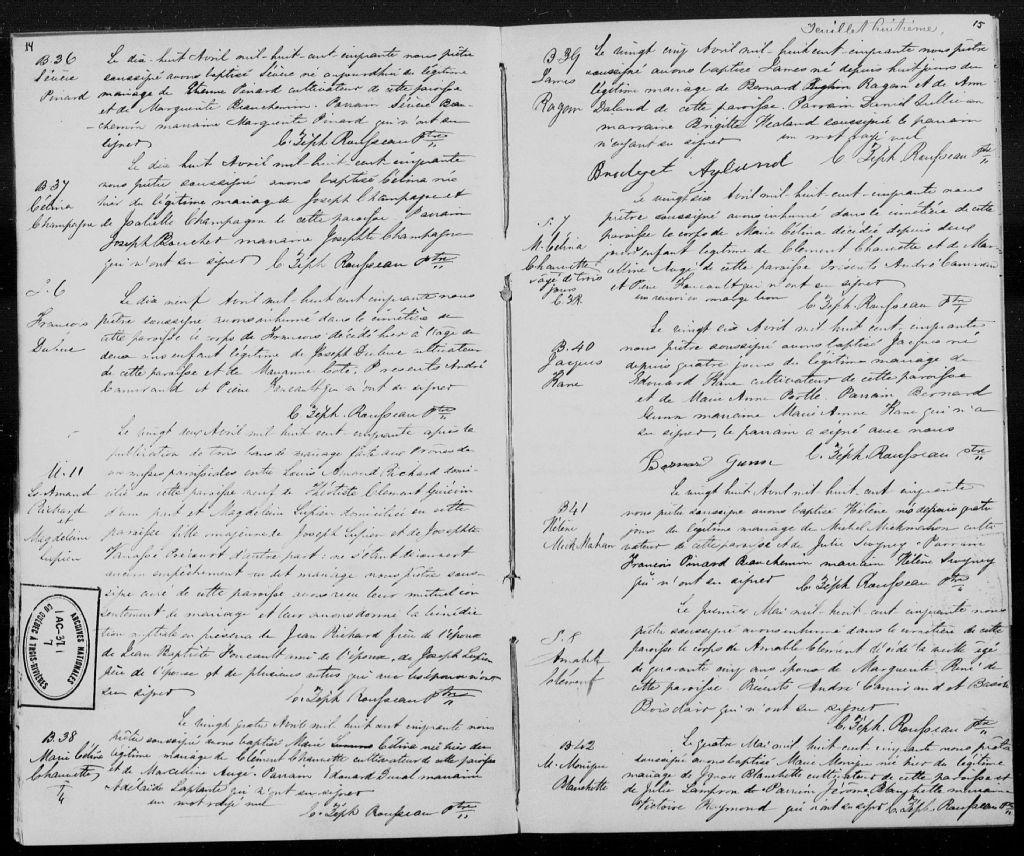 14
B.36
Sévère
Pinard
Le dix-huit Avril mil-huit-cent-cinquante nous prêtre
soussigné avons baptisé Sévère né aujourdhui du légitime
mariage de Pinard cultivateur de cette paroisse
et de Marguerite Beauchemin. Parrain Sévère Beau-
-chemin marraine Marguerite Pinard qui n'ont su
signer C. Zéph Rousseau Ptre
B.37
Célina
Champagne
Le dix huit Avril mil huit cent cinquante
nous prêtre soussigné avons baptisé Célina née
hier du légitime mariage de Joseph Champagne et
de Isabelle Champagne de cette paroisse Parrain
Joseph marraine Josephte Champagne
qui n'ont su signer C. Zéph. Rousseau Ptre
S. 6
François
Dubuc
Le dix neuf Avril mil huit cent cinquante nous
prêtre soussigné avons inhumé dans le cimetière de
cette paroisse le corps de François décédé hier à l'âge de
deux ans enfant légitime de Joseph cultivateur
de cette paroisse et de Marianne Coté. Présents André
Camirand et Pierre Foucault qui n'ont su signer
C. Zéph. Rousseau Ptre
M. 11
Ls Amand
Richard
et
Magdelaine
Lupien
Le vingt deux Avril mil huit cent cinquante après la
publication de trois bans de mariage faite aux Prônes de
nos messes paroissiales entre Louis Amand Richard domi-
cilié en cette paroisse veuf de Théotiste Clement
d'une part et Magdelaine Lupien domiciliée en cette
paroisse fille majeure de Joseph Lupien et de Josephte
d'autre part: ne s'étant découvert
aucun empêchement au dit mariage nous prêtre sous-
signé curé de cette paroisse avons reçu leur mutuel con-
sentement de mariage et leur avons donné la bénédic-
tion nuptiale en présence de Jean Richard frère de l'époux
de Jean Baptiste Foucault ami de l'époux, de Joseph Lupien
père de l'épouse et de plusieurs autres qui
su signer
C. Zéph Rousseau Ptre
ARCHIVES NATIONALES
AC-37
7
DU QUÉBEC À TROIS-RIVIÈRES
B.38
Marie Célina
Charette
Le vingt quatre Avril mil huit cent cinquante nous
prêtre soussigné avons baptisé Marie Célina née hier du
légitime mariage de Clément Charette cultivateur de cette paroisse
et de Marcelline Augé. Parrain Edouard marraine
Adelaide Laplante qui n'ont su signer
un mot rayé nul
C. Zéph Rousseau Ptre
Feuillet huitième.
15
B.39
James
Ragan
Le vingt cinq Avril mil huit cent cinquante nous prêtre
soussigné avons baptisé James né depuis huit jours du
légitime mariage de Bernard Ragan et de Ann
de cette paroisse. Parrain
marraine Brigitte soussignée le parrain
n'ayant su signer un mot rayé nul
Bridget Aylund C Zéph Rousseau Ptre
S. 7
M. Célina
Charette
âgé de trois
jours
C. ZR
Le vingt six Avril mil-huit-cent-cinquante nous
prêtre soussigné avons inhumé dans le cimetière de cette
paroisse le corps de Marie Célina décédée depuis deux
jours enfant légitime de Clément Charette et de Mar-
celline Augé de cette paroisse Présents André Camirand
et Pierre Foucault qui n'ont su signer
un renvoi en marge bon C. Zéph Rousseau Ptre
B.40
Jacques
Kane
Le vingt six Avril mil huit cent-cinquante
nous prêtre soussigné avons baptisé Jacques né
depuis quatre jours du légitime mariage de
Edouard Kane cultivateur de cette paroisse
et de Marie Anne Parrain Bernard
Gunn marraine Marie Anne Kane qui n'a
su signer, le parrain a signé avec nous
Bernard Gunn C. Zéph. Rousseau Ptre
B.41
Hélène
Mick Mahan
Le vingt huit Avril mil huit-cent cinquante
nous prêtre soussigné avons baptisé Hélène née depuis quatre
jours du légitime mariage de Michel culti
vateur de cette paroisse et de Julie Parrain
François Pinard Beauchemin marraine Hélène
qui n'ont su signer C. Zéph Rousseau Ptre
S. 8
Amable
Clément
Le premier Mai mil-huit-cent cinquante nous
prêtre soussigné avons inhumé dans le cimetière de cette
paroisse le corps de Amable Clement décédé la veille agé
de quarante cinq ans époux de Marguerite René de
cette paroisse. Présents André Camirand et
Boisclair qui n'ont su signer
C. Zéph Rousseau Ptre
B.42
M. Monique
Blanchette
Le quatre Mai mil huit cent cinquante nous prêtre
soussigné avons baptisé Marie Monique née hier du légitime
mariage de Ignace Blanchette cultivateur de cette paroisse et
de Julie Lampron Parrain Jérôme Blanchette marraine
Victoire Raymond qui n'ont su signer C. Zéph. Rousseau Ptre